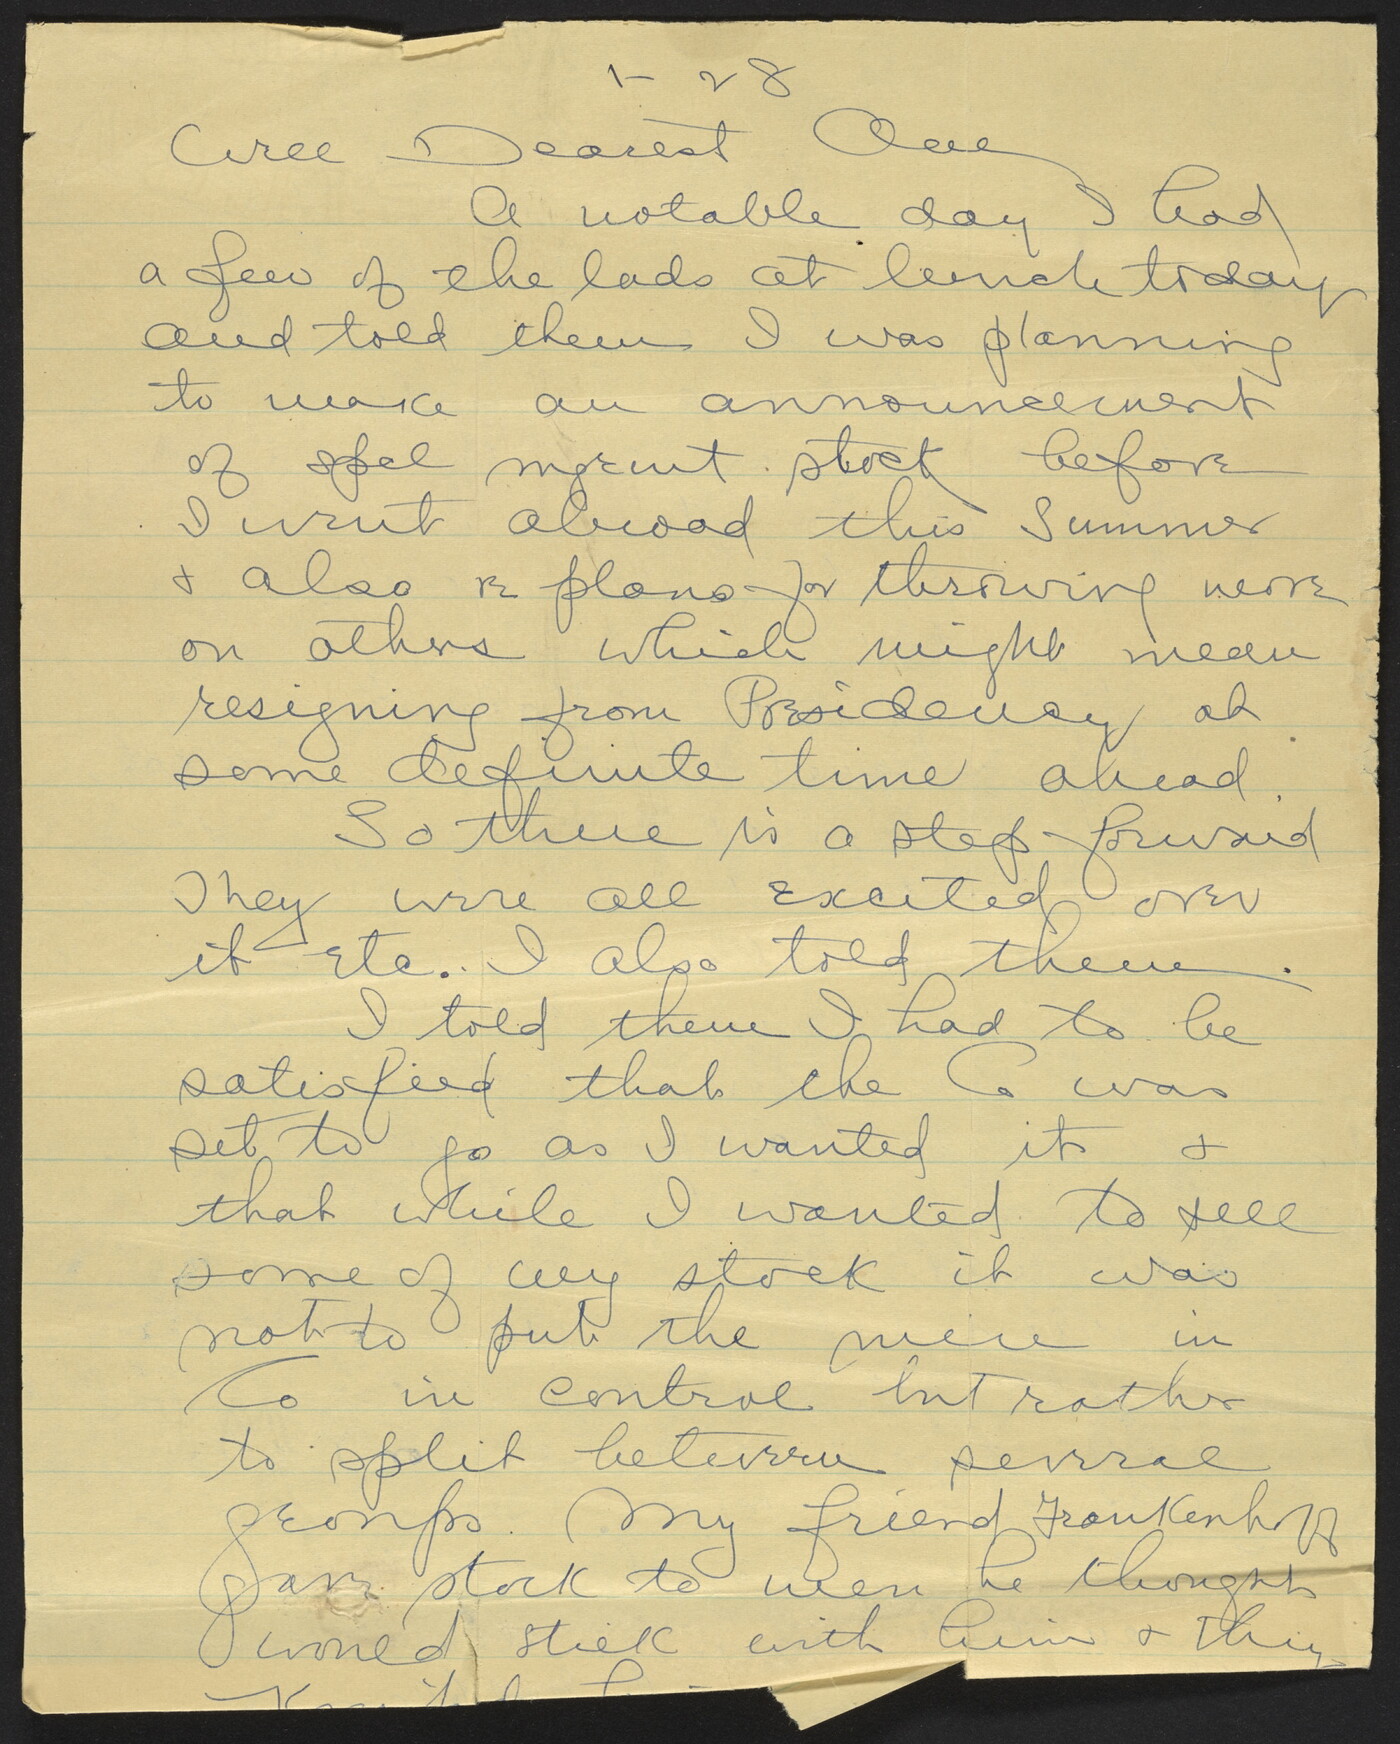 1-28
Well Dearest One
A notable day I had
a few of the lads at lunch today
and told them I was planning
to make an announcement
of spel mgemt stock before
I went abroad this Summer
+ also re plans for throwing more
on others which might mean
resigning from Presidency at
some definite time ahead.
So there is a step forward
They were all excited over
it etc.. I also told them.
I told them I had to be
satisfied that the Co was
set to go as I wanted it +
that while I wanted to sell
some of my stock it was
not to put the men in
Co in control but rather
to split between several
groups. My friend Frankenhoff
gave stock to men he thought
would stick with him + they